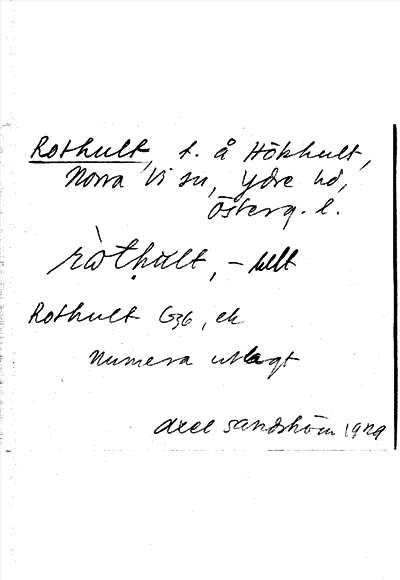 Rothult, t. å Hökhult,
Norra Vi sn, Ydre hd,
Österg. l.
ròt̀hult, – hllt
Rothult G36, ek
Numera utlagt
Axel Sandström 1929